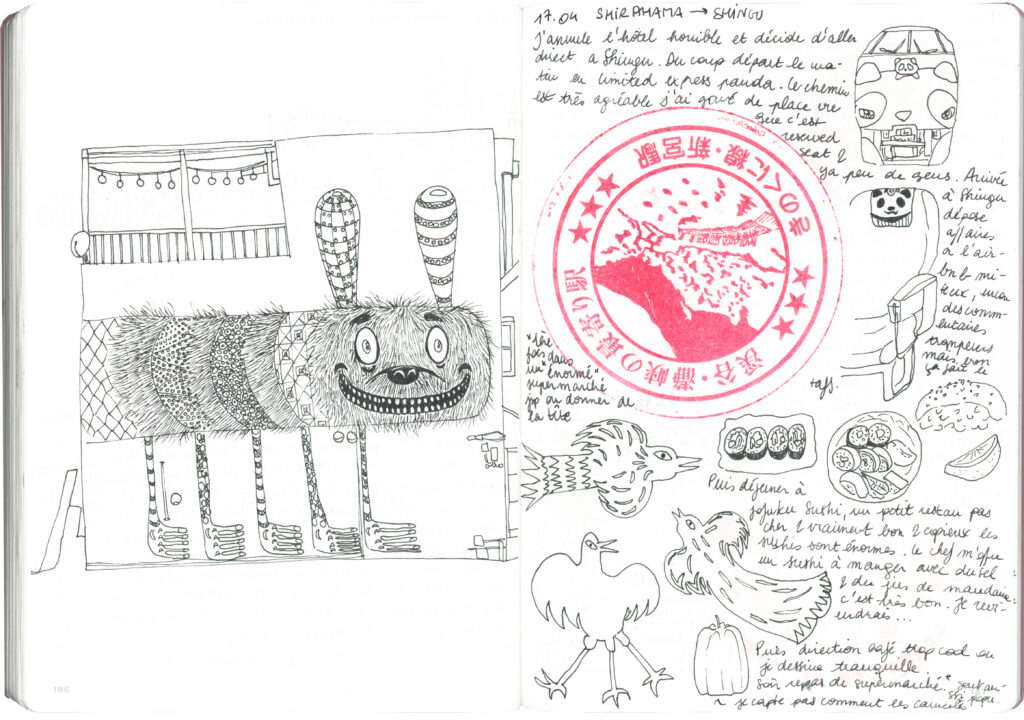 17.04 SHIRAHAMA → SHINGU
J'annule l'hôtel horrible et décide d'aller
direct a Shingu. Du coup départ le ma-
tin en limited express panda. Le chemin
est très agréable j'ai gouté de place vu
que c'est
reserved
seat &
ya peu de gens. Arrivée
à Shingu
dépose
affaires
à l'air-
bnb mi-
teux, encore
des comm-
entaires
trompeurs
mais bon
ça fait le
taf.
るのくに線・新宮駅
渓谷・瀞峡の最寄り駅
*1ère
fois dans
un "énormé"
supermarché
pp ou donner de
la tête
Puis déjeuner à
sushi, un petit restau pas
cher & vraiment bon & copieux les
sushis sont énormes. Le chef m'offre
un sushi à manger avec du sel
& du jus de mandarine
c'est très bon. Je revi-
endrais...
Puis direction café trop cool ou
je dessine tranquille.
Soir repas de supermarché.*
~ je capte pas comment les
186